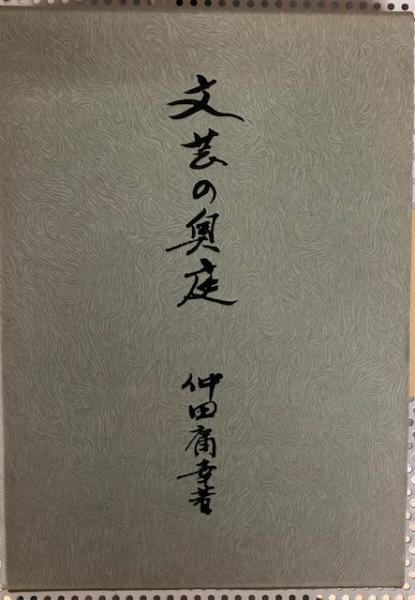 文芸の奥庭
仲田庸幸著